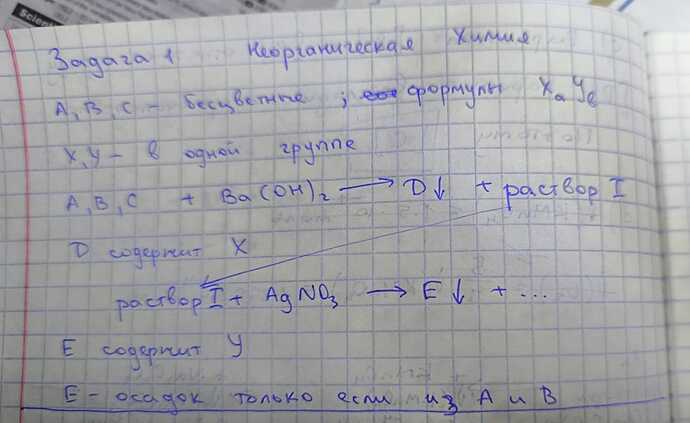 Scien
Задача 1 Неорганическая Химия
A, B, C - бесцветные ; формулы XaYb
X, Y - в одной группе
A, B, C + Ba(OH)2 → D↓ + раствор I
D содержит X
раствор I + AgNO3 → E↓ + ...
E содержит Y
E - осадок только если из A и B